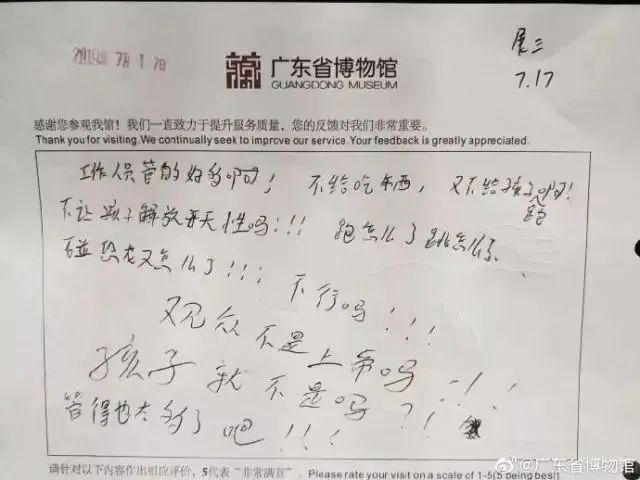 2019年7月17日
展三
7.17
广东省博物馆
GUANGDONG MUSEUM
感谢您参观我馆！我们一直致力于提升服务质量，您的反馈对我们非常重要。
Thank you for visiting.We continually seek to improve our service.Your feedback is greatly appreciated.
工作人员管的好多啊！不给吃东西，又不给孩子跑啊！
不让孩子解放天性吗！！！跑怎么了跳怎么了
碰恐龙又怎么了！！！不行吗！！！
观众不是上帝吗！！！
孩子就不是吗？！！
管得也太多了吧！！！
请针对以下内容作出相应评价，5代表“非常满意”。 Please rate your visit on a scale of 1-5(5 being best)
@广东省博物馆